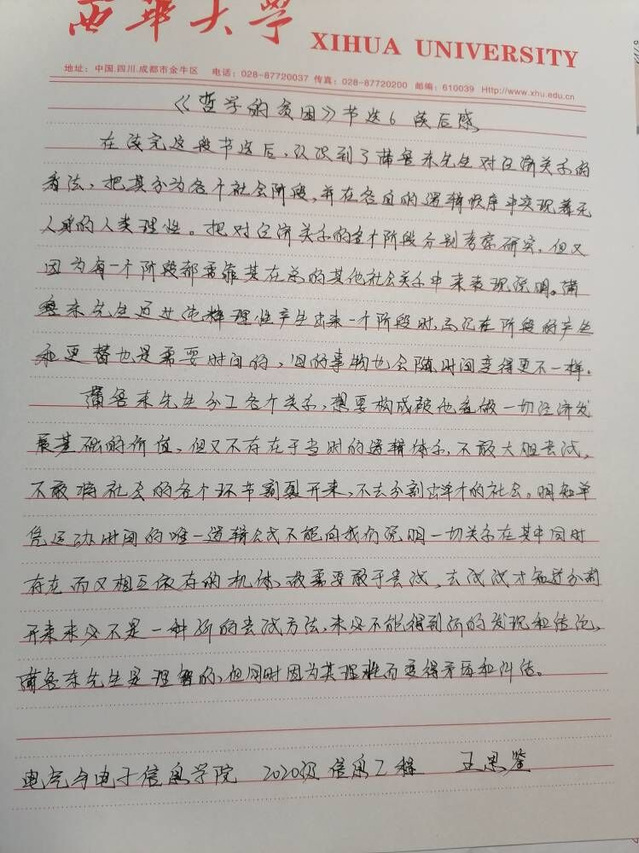 西华大学 XIHUA UNIVERSITY
地址：中国.四川.成都市金牛区 电话：028-87720037 传真：028-87720200 邮编：610039 Http://www.xhu.edu.cn
《哲学的贫困》节选6 读后感
在读完这段节选后，认识到了蒲鲁东先生对经济关系的
看法，把其分为各个社会阶段，并在各自的逻辑顺序中实现着无
人身的人类理性。把对经济关系的各个阶段分别考察研究，但又
因为每一个阶段都要靠其在总的其他社会关系中来表现说明。蒲
鲁东先生还让纯粹理性产生出来一个阶段时，忘记在阶段的产生
和更替也是需要时间的，旧的事物也会随时间变得更不一样。
蒲鲁东先生分工各个关系，想要构成被他看做一切经济发
展基础的价值，但又不存在于当时的逻辑体系，不敢大胆尝试，
不敢将社会的各个环节割裂开来，不去分割出单个的社会。明知单
凭运动时间的唯一逻辑公式不能向我们说明一切关系在其中同时
存在而又相互依存的机体，故需要敢于尝试，去试试才知道分割
开来未必不是一种新的尝试方法，未必不能得到新的发现和结论。
蒲鲁东先生是理智的，但同时因为其理性而变得矛盾和纠结。
电气与电子信息学院 2020级 信息工程 王思